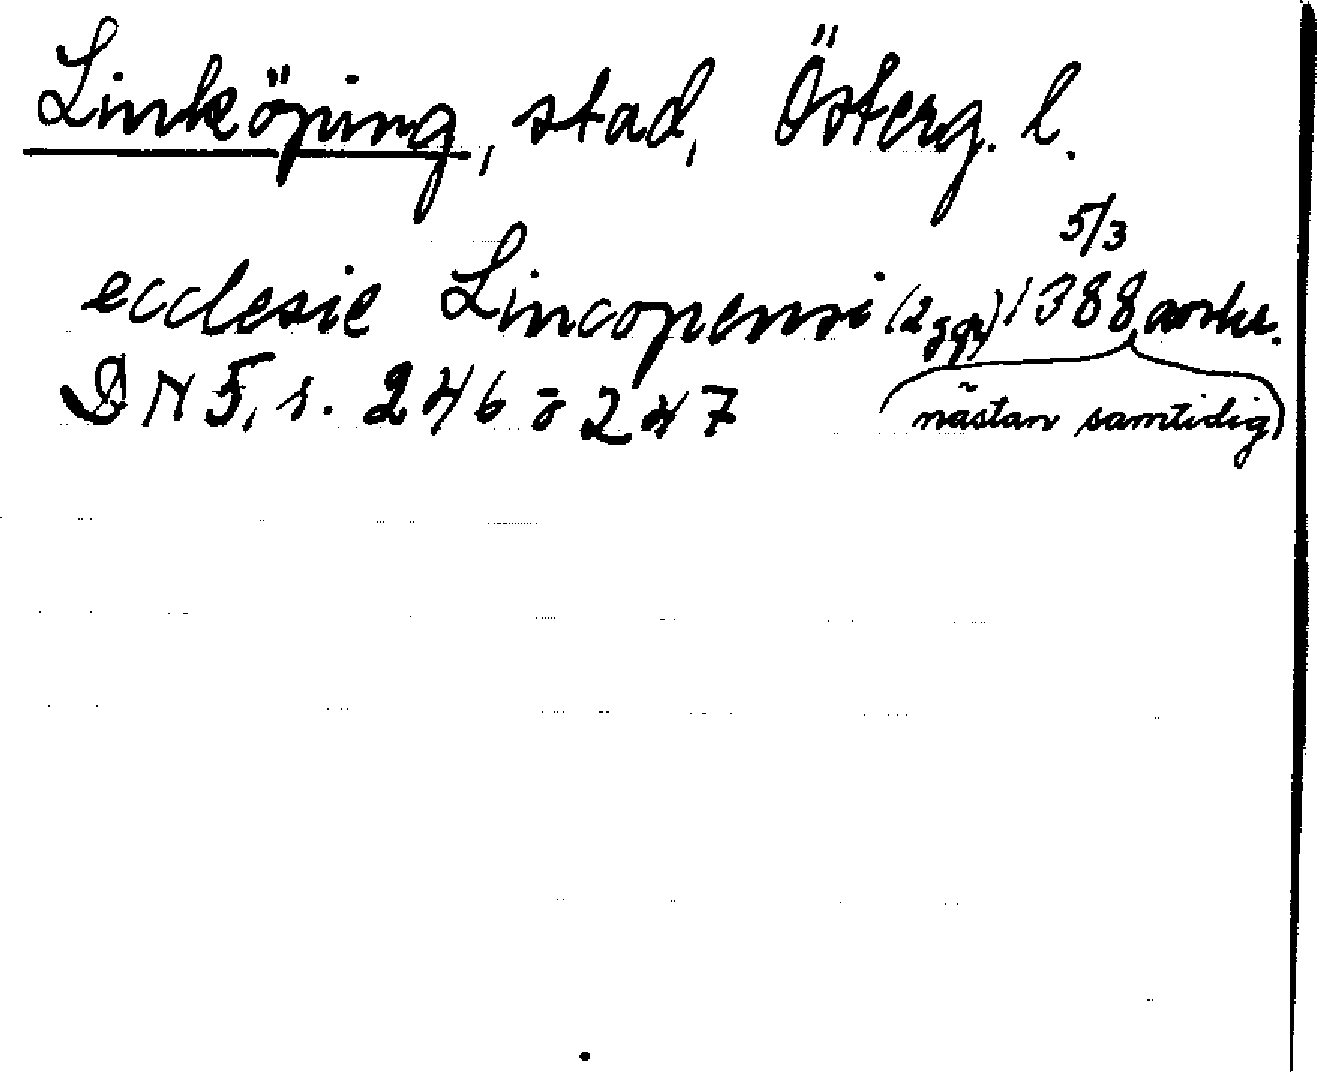 Linköping, stad, Österg. l.
5/3
ecclesie Lincopensi (2 ggr) 1388 avskr.
DN 5, s. 246 o 247
nästan samtidig)